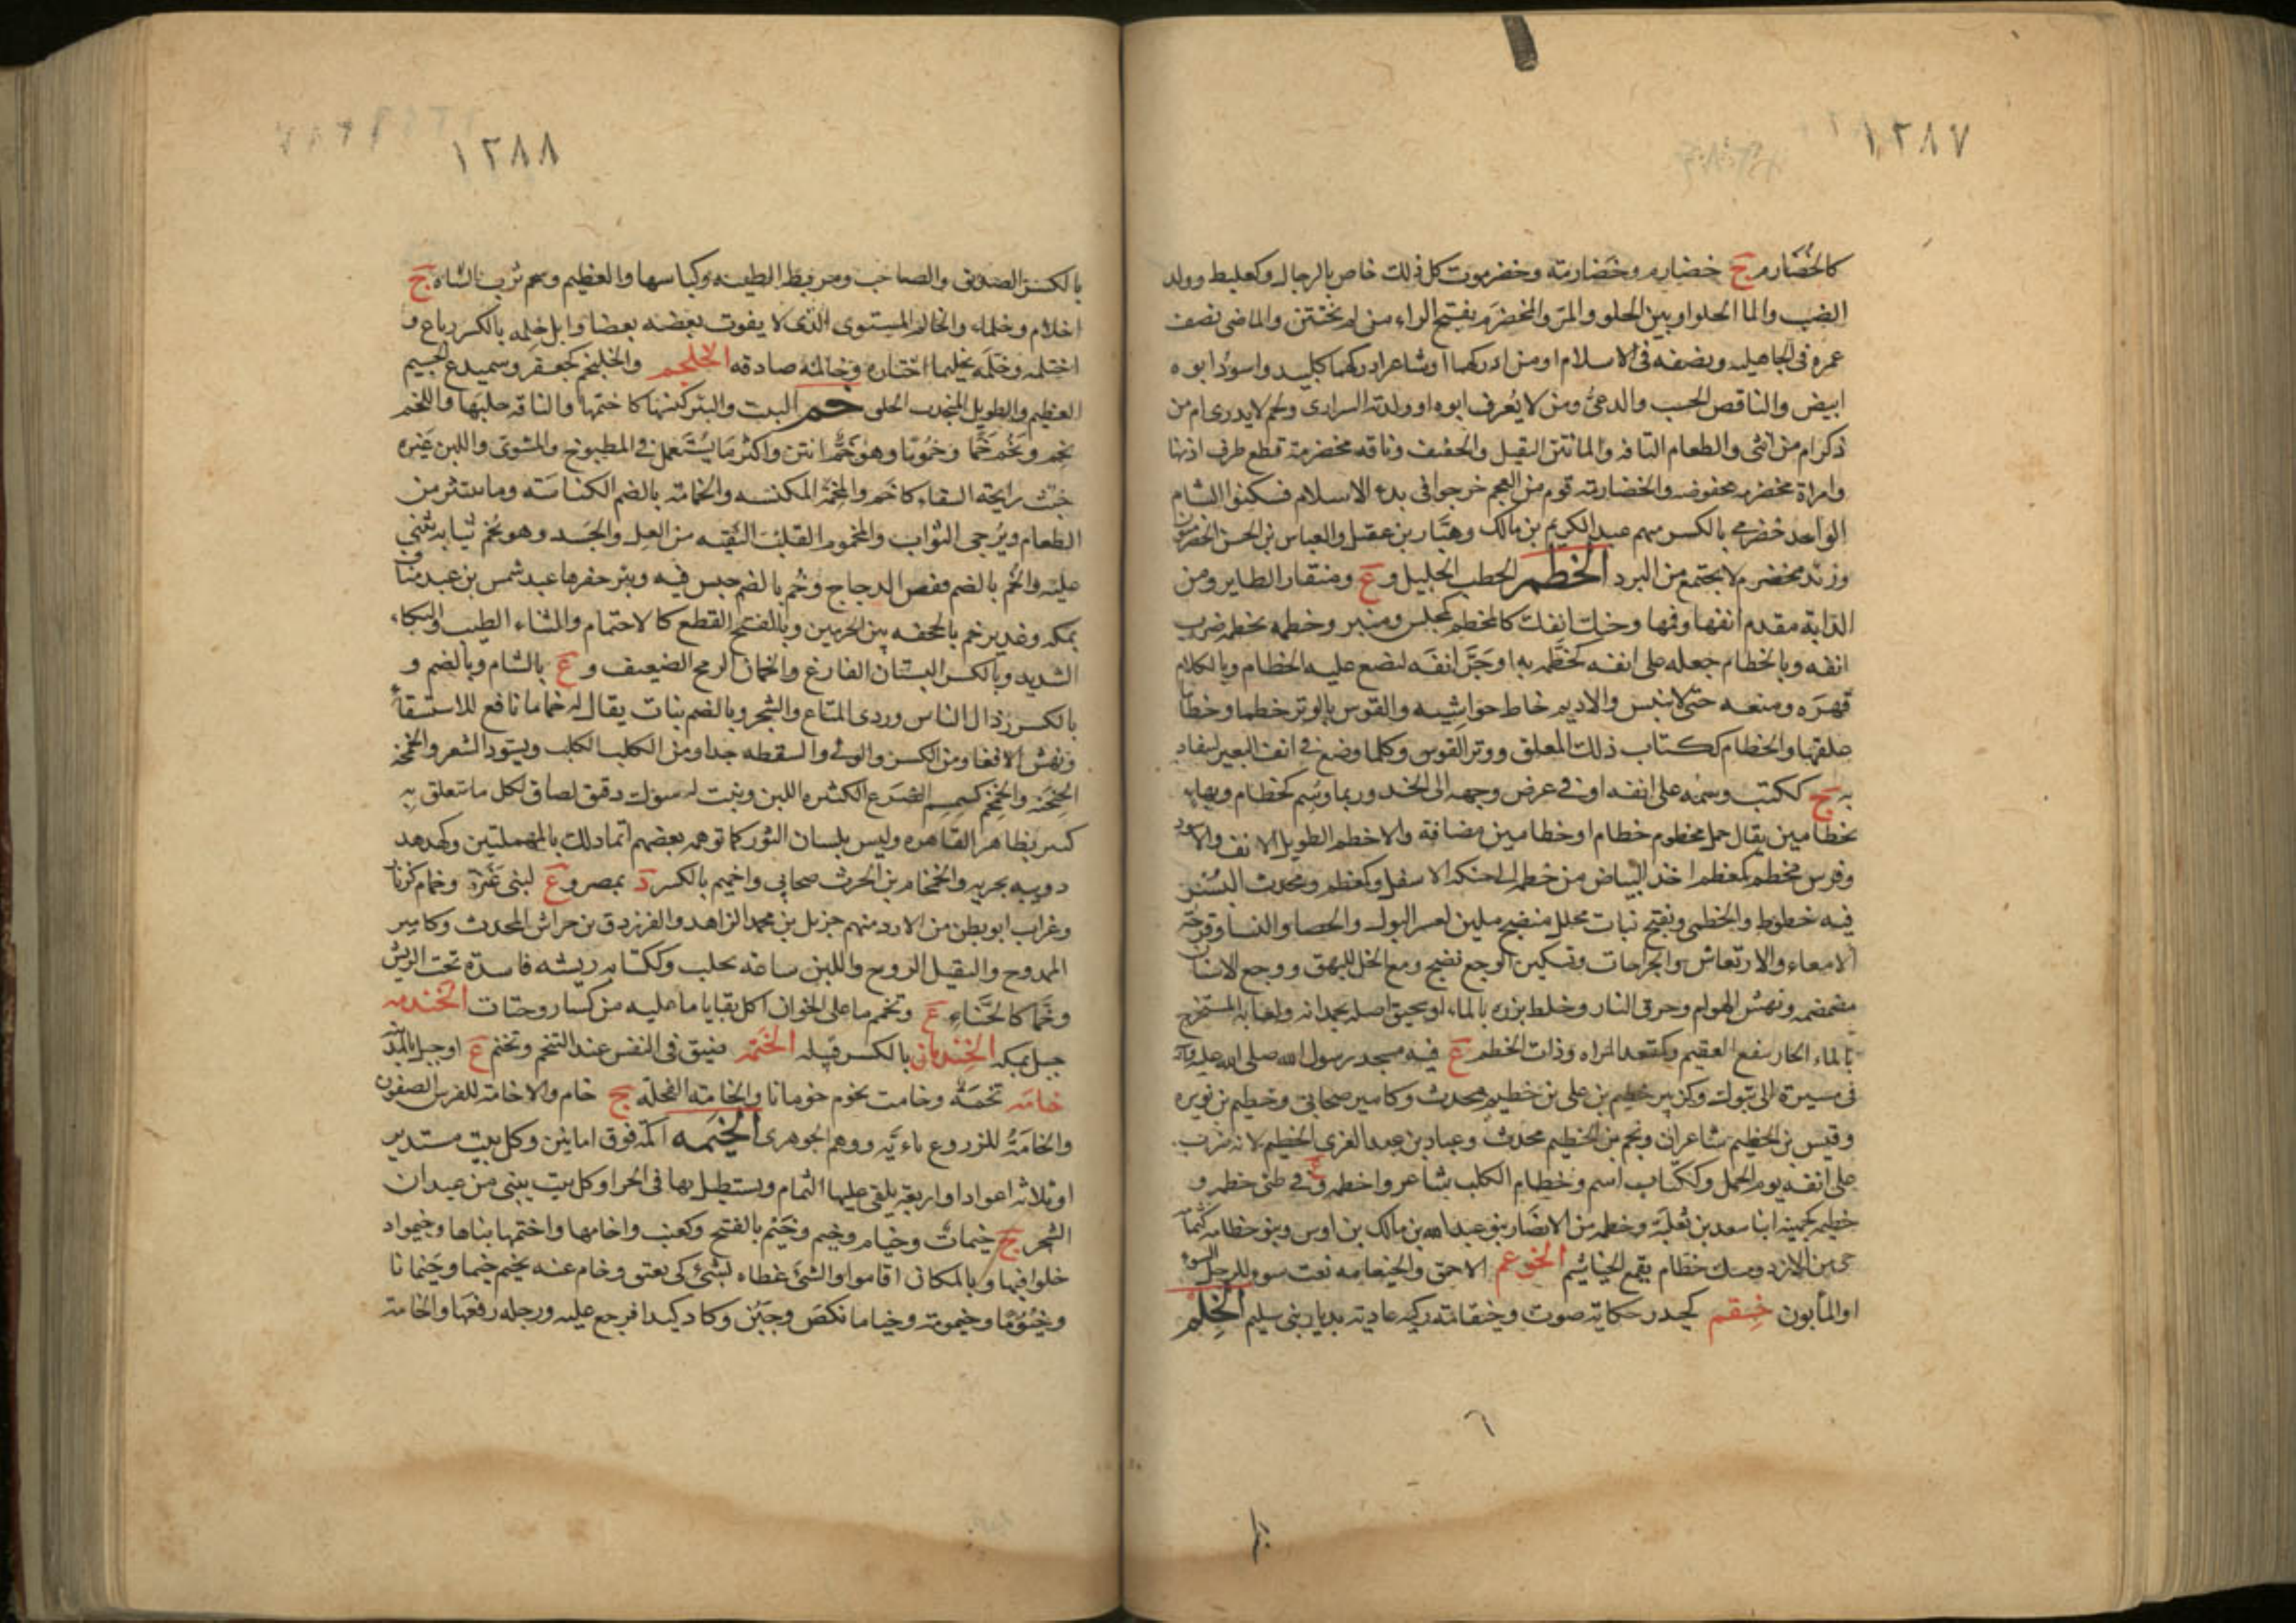 ١٢٨٧
كالخضارم ج خضارم وخضارمة وخضرموت كل ذلك خاص بالرجال وكعلبط وولد
الضب والما الحلو او بين الحلو والمر والمخضرم بفتح الراء من لم يختتن والماضى نصف
عمره فى الجاهليه ونصفه فى الاسلام او من ادركهما او شاعر ادركهما كلبيد واسود ابوه
ابيض والناقص الحسب والدعى ومن لا يعرف ابوه او ولدته السرارى ولحم لا يدرى ام من
ذكر ام من انثى والطعام التافه والما نتن الثقيل والخفيف وناقه مخضرمة قطع طرف اذنها
وامراة مخضرمه مخفوضه والخضارمه قوم من العجم خرجوا فى بدء الاسلام فسكنوا الشام
الواحد خضرمى بالكسر منهم عبد الكريم بن مالك وهبار بن عقيل والعباس بن الحسن الخضرميون
وزند مخضرم لا يجتمع من البرد الخطم الخطب الجليل و ع ومنقار الطاير ومن
الدابة مقدم انفها وفمها و انفك كالمخطم كمجلس ومنبر وخطمه يخطمه ضرب
انفه وبالخطام جعله على انفه كخطمه به او جر انفه ليضع عليه الخطام وبالكلام
قهره ومنعه حتى لا ينبس والاديم خاط حواشيه والقوس بالوتر خطما وخطاما
علقها والخطام ككتاب ذلك المعلق ووتر القوس وكلما وضع فى انف البعير ليقاد
به ج ككتب وسمه على انفه او فى عرض وجهه الى الخد وربما وسم كخطام وبهاء
بخطامين يقال جمل مخطوم خطام او خطامين مضافة والاخطم الطويل الانف والاسود
وفرس مخطم كمعظم اخذ البياض من خطمه الى حنكه الاسفل وكمعظم ومحدث البسر
فيه خطوط والخطمى ويفتح نبات محلل منضج ملين لعسر البول والحصا والنسا وقرحة
الامعاء والارتعاش والجراحات وتسكين الوجع نضيج ومع الخل للبهق ووجع الاسنان
مضمضه ونهش الهوام وحرق النار وخلط بزره بالماء او سحيق اصله يجمدانه ولعابه المستخرج
بالماء الحار ينفع العقيم والمقعد المراه وذات الخطم ع فيه مسجد رسول الله صلى الله عليه وآله
فى مسيرة الى تبوك وكزبير خطيم بن على بن خطيم محدث وكامير صحابى وخطيم بن نويره
وقيس بن الخطيم شاعران ونجم بن الخطيم محدث وعباد بن عبد العزى الخطيم لانه ضرب
على انفه يوم الجمل وككتاب اسم وخطام الكلب شاعر واخطم ع وفى طىئ خطمه و
خطيم كجهينه ابنا سعد بن ثعلبة وخطمه من الانصار بنو عبد الله بن مالك بن اوس وبنو خطامه كثمامة
حى من الازد ومسك خطام يفعم الخياشيم الخوعم الاحمق والخيعامه نعت سوء للرجل السوء
او المأبون خيقم كحيدر حكاية صوت وخيقمانه ركيه عاديه بديار بنى سليم الخلم
١٢٨٨
بالكسر الصديق والصاحب ومربض الظبيه وكناسها والعظيم وشحم ثرب الشاه ج
اخلام وخلماء والخالم المستوى الذى لا يفوت بعضه بعضا وابل خلمه بالكسر رباع و
اختلمه وخلمه تخليما اختاره وخالمه صادقه الخلجم والخليجم كجعفر وسميدع الجسيم
العظيم والطويل المنجذب الخلق خم البيت والبئر كنسها كاختمها والناقه حلبها واللحم
يخم ويخم خما وخموما وهو خم انتن واكثر ما يستعمل فى المطبوخ والمشوى واللبن غيره
خبث رايحة السقاء كاخم والمخمة المكنسه والخمامه بالضم الكناسة وما ينتثر من
الطعام ويرجى الثواب والمخموم القلب النقيه من الغل والحسد وهو يخم ثيابه يثنى
عليه والخم بالضم قفص الدجاج وخم بالضم حبس فيه وبئر حفرها عبد شمس بن عبد مناف
بمكه وغدير خم بالجحفه بين الحرمين وبالفتح القطع كالاختمام والثناء الطيب والبكاء
الشديد وبالكسر البستان الفارغ والخمان الرمح الضعيف و ع بالشام وبالضم و
بالكسر رذال الناس وردى المتاع والشجر وبالضم نبات يقال له خاما نافع للاستسقاء
ونهش الافعى ومن الكسر والوثى والسقطه جدا ومن الكلب الكلب ويسود الشعر والخمخمة
الخنخنة والخمخم كسمسم الضرع الكثيره اللبن ونبت له شوك دقيق لصاق لكل ما يتعلق به
كسر بظاهر القاهره وليس بلسان الثور كما توهمه بعضهم انما ذلك بالمهملتين وكهدهد
دويبه بحريه والخمخام بن الحرث صحابى واخميم بالكسر د بمصر و ع لبنى عنزة وخمام كزنار
وغراب ابو بطن من الازد منهم جزيل بن محمد الزاهد والفرزدق بن حراش المحدث وكامير
الممدوح والثقيل الروح واللبن ساعه يحلب وككتابه ريشه فاسدة تحت الريش
وخما كالحناء ع وتخمم ما على الخوان اكل بقايا ما عليه من كسار وحتات الخندمه
جبل بمكه الخندمان بالكسر قبيله الخنمه ضيق فى النفس عند التنخم وتخنم ع او جبل بالمدينة
خامه تخمة وخامت تخوم خومانا والخامة الفجله ج خام والاخامه للفرس الصفون
والخامة للزروع ياءيه ووهم الجوهرى الخيمه اكمه فوق ابانين وكل بيت مستدير
او ثلاثه اعواد او اربعه يلقى عليها الثمام ويستظل بها فى الحر او كل بيت يبنى من عيدان
الشجر ج خيمات وخيام وخيم وخيم بالفتح وكعنب واخامها واختمها بناها وخيموا د
خلوا فيها وبالمكان اقاموا والشئ غطاه بشئ كى يعتق وخام عنه يخيم خيما وخيمانا
وخيوما وخيمومة وخياما نكص وجبن وكاد كيدا فرجع عليه ورجله رفعها والخامة